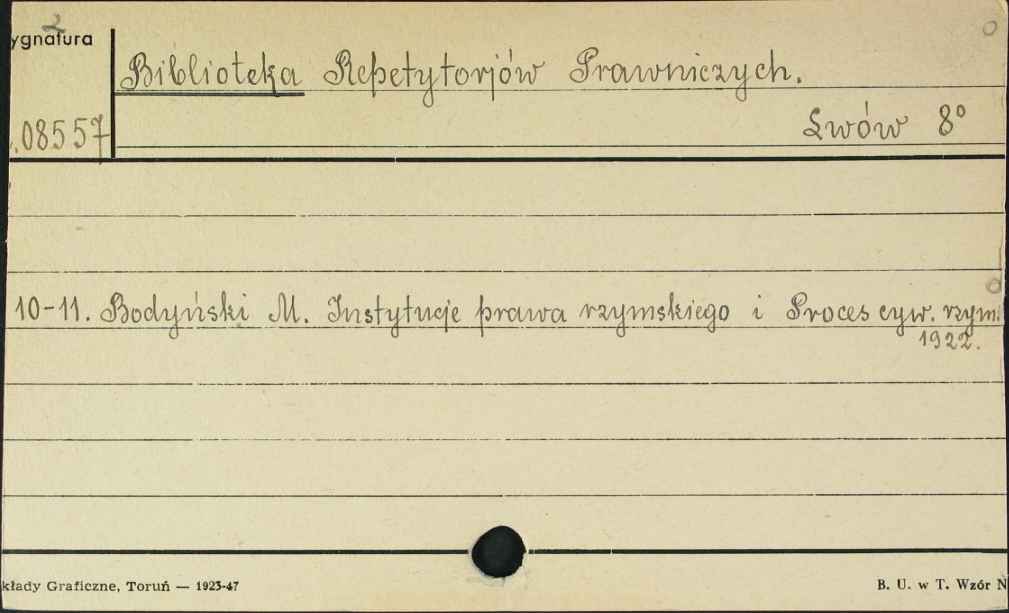 2
ygnatura
Biblioteka Repetytorjów Prawniczych.
.08557
Lwów 8°
10-11. Bodyński M. Instytucje prawa rzymskiego i Proces cyw. rzym.
1922.
kłady Graficzne, Toruń — 1923-47
B. U. w T. Wzór N